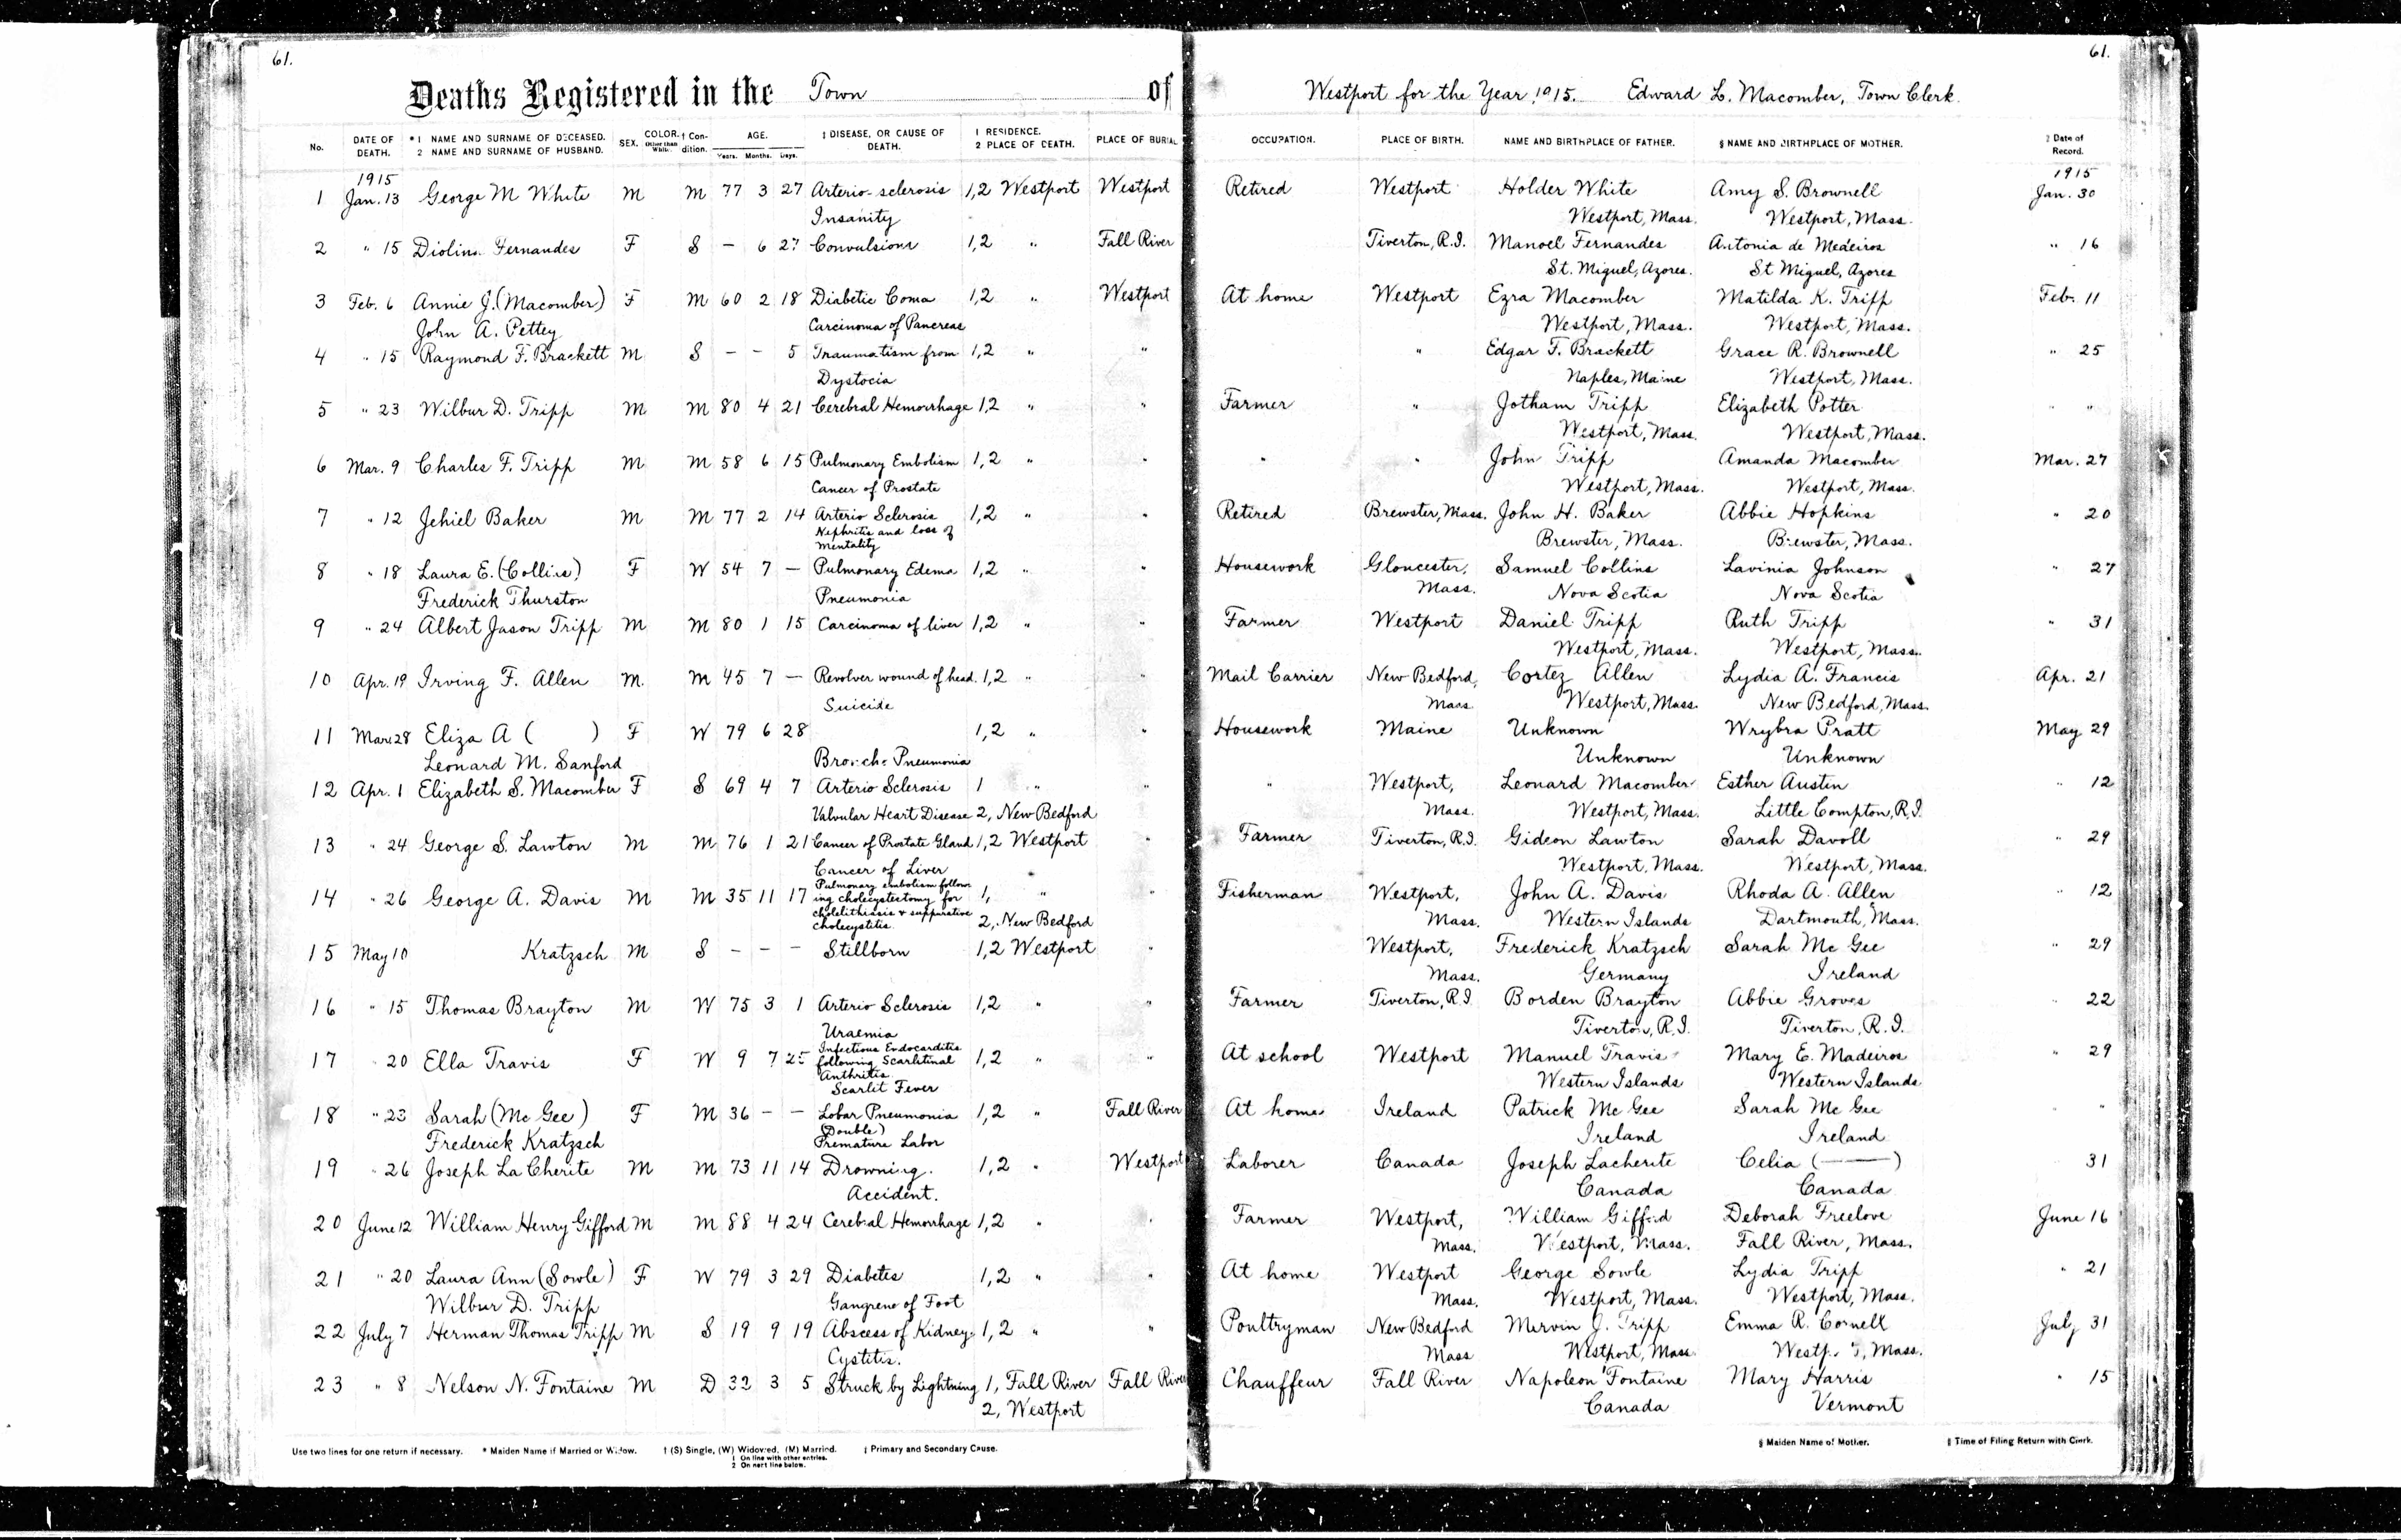 61.
61.
Deaths Registered in the Town of Westport for the Year 1915. Edward L. Macomber, Town Clerk.
No. DATE OF DEATH. *1 NAME AND SURNAME OF DECEASED. 2 NAME AND SURNAME OF HUSBAND. SEX. COLOR. Other than White. † Condition. AGE. Years. Months. Days. ‡ DISEASE, OR CAUSE OF DEATH. 1 RESIDENCE. 2 PLACE OF DEATH. PLACE OF BURIAL OCCUPATION. PLACE OF BIRTH. NAME AND BIRTHPLACE OF FATHER. § NAME AND BIRTHPLACE OF MOTHER. Date of Record.
1915 1915
1 Jan. 13 George M White M M 77 3 27 Arterio-sclerosis 1,2 Westport Westport Retired Westport Holder White Amy S. Brownell Jan. 30
Insanity Westport, Mass. Westport, Mass.
2 " 15 Diolina Fernandes F S - 6 27 Convulsions 1,2 " Fall River Tiverton, R.I. Manoel Fernandes Antonia de Medeiros " 16
St. Miguel, Azores. St Miguel, Azores
3 Feb. 6 Annie J. (Macomber) F M 60 2 18 Diabetic Coma 1,2 " Westport At home Westport Ezra Macomber Matilda K. Tripp Feb. 11
John A. Pettey Carcinoma of Pancreas Westport, Mass. Westport, Mass.
4 " 15 Raymond F. Brackett M S - - 5 Traumatism from 1,2 " " " Edgar F. Brackett Grace R. Brownell " 25
Dystocia Naples, Maine Westport, Mass.
5 " 23 Wilbur D. Tripp M M 80 4 21 Cerebral Hemorrhage 1,2 " " Farmer " Jotham Tripp Elizabeth Potter " "
Westport, Mass. Westport, Mass.
6 Mar. 9 Charles F. Tripp M M 58 6 15 Pulmonary Embolism 1,2 " " " " John Tripp Amanda Macomber Mar. 27
Cancer of Prostate Westport, Mass. Westport, Mass.
7 " 12 Jehiel Baker M M 77 2 14 Arterio Sclerosis 1,2 " " Retired Brewster, Mass. John H. Baker Abbie Hopkins " 20
Nephritis and loss of
mentality Brewster, Mass. Brewster, Mass.
8 " 18 Laura E. (Collins) F W 54 7 — Pulmonary Edema 1,2 " " Housework Gloucester, Samuel Collins Lavinia Johnson " 27
Frederick Thurston Pneumonia Mass. Nova Scotia Nova Scotia
9 " 24 Albert Jason Tripp M M 80 1 15 Carcinoma of liver 1,2 " " Farmer Westport Daniel Tripp Ruth Tripp " 31
Westport, Mass. Westport, Mass.
10 Apr. 19 Irving F. Allen M. M 45 7 — Revolver wound of head. 1,2 " " Mail Carrier New Bedford, Cortez Allen Lydia A. Francis Apr. 21
Suicide Mass Westport, Mass. New Bedford, Mass.
11 Mar 28 Eliza A ( ) F W 79 6 28 1,2 " " Housework Maine Unknown Wrybra Pratt May 29
Leonard M. Sanford Broncho Pneumonia Unknown Unknown
12 Apr. 1 Elizabeth S. Macomber F S 69 4 7 Arterio Sclerosis 1 " " " Westport, Leonard Macomber Esther Austin " 12
Valvular Heart Disease 2, New Bedford Mass. Westport, Mass. Little Compton, R.I.
13 " 24 George S. Lawton M M 76 1 21 Cancer of Prostate Gland 1,2 Westport " Farmer Tiverton, R.I. Gideon Lawton Sarah Davoll " 29
Cancer of Liver Westport, Mass. Westport, Mass.
Pulmonary embolism follow
14 " 26 George A. Davis M M 35 11 17 ing cholecystectomy for 1, " " Fisherman Westport, John A. Davis Rhoda A. Allen " 12
cholelithiasis & suppurative
cholecystitis. 2, New Bedford Mass. Western Islands Dartmouth, Mass.
15 May 10 Kratzsch M S - - - Stillborn 1,2 Westport " Westport, Frederick Kratzsch Sarah Mc Gee " 29
Mass. Germany Ireland
16 " 15 Thomas Brayton M W 75 3 1 Arterio Sclerosis 1,2 " " Farmer Tiverton, R.I. Borden Brayton Abbie Groves " 22
Uraemia Tiverton, R.I. Tiverton, R.I.
Infectious Endocarditis
17 " 20 Ella Travis F W 9 7 25 following Scarlitinal 1,2 " " At school Westport Manuel Travis Mary E. Madeiros " 29
Anthritis
Scarlit Fever Western Islands Western Islands
18 " 23 Sarah (Mc Gee) F M 36 - - Lobar Pneumonia 1,2 " Fall River At home Ireland Patrick Mc Gee Sarah Mc Gee " "
(Double)
Frederick Kratzsch Premature Labor Ireland Ireland
19 " 26 Joseph La Cherite M M 73 11 14 Drowning. 1,2 " Westport Laborer Canada Joseph Lacherite Celia (———) 31
Accident. Canada Canada
20 June 12 William Henry Gifford M M 88 4 24 Cerebral Hemorrhage 1,2 " " Farmer Westport, William Gifford Deborah Freelove June 16
Mass. Westport, Mass. Fall River, Mass.
21 " 20 Laura Ann (Sowle) F W 79 3 29 Diabetes 1,2 " " At home Westport George Sowle Lydia Tripp " 21
Wilbur D. Tripp Gangrene of Foot Mass. Westport, Mass. Westport, Mass.
22 July 7 Herman Thomas Tripp M S 19 9 19 Abscess of Kidney 1,2 " " Poultryman New Bedford Mervin J. Tripp Emma R. Cornell July 31
Cystitis. Mass Westport, Mass. Westport, Mass.
23 " 8 Nelson N. Fontaine M D 32 3 5 Struck by Lightning 1, Fall River Fall River Chauffeur Fall River Napoleon Fontaine Mary Harris " 15
2, Westport Canada Vermont
Use two lines for one return if necessary. * Maiden Name if Married or Widow. † (S) Single, (W) Widowed, (M) Married. ‡ Primary and Secondary Cause. § Maiden Name of Mother. Time of Filing Return with Clerk.
1 On line with other entries.
2 On next line below.